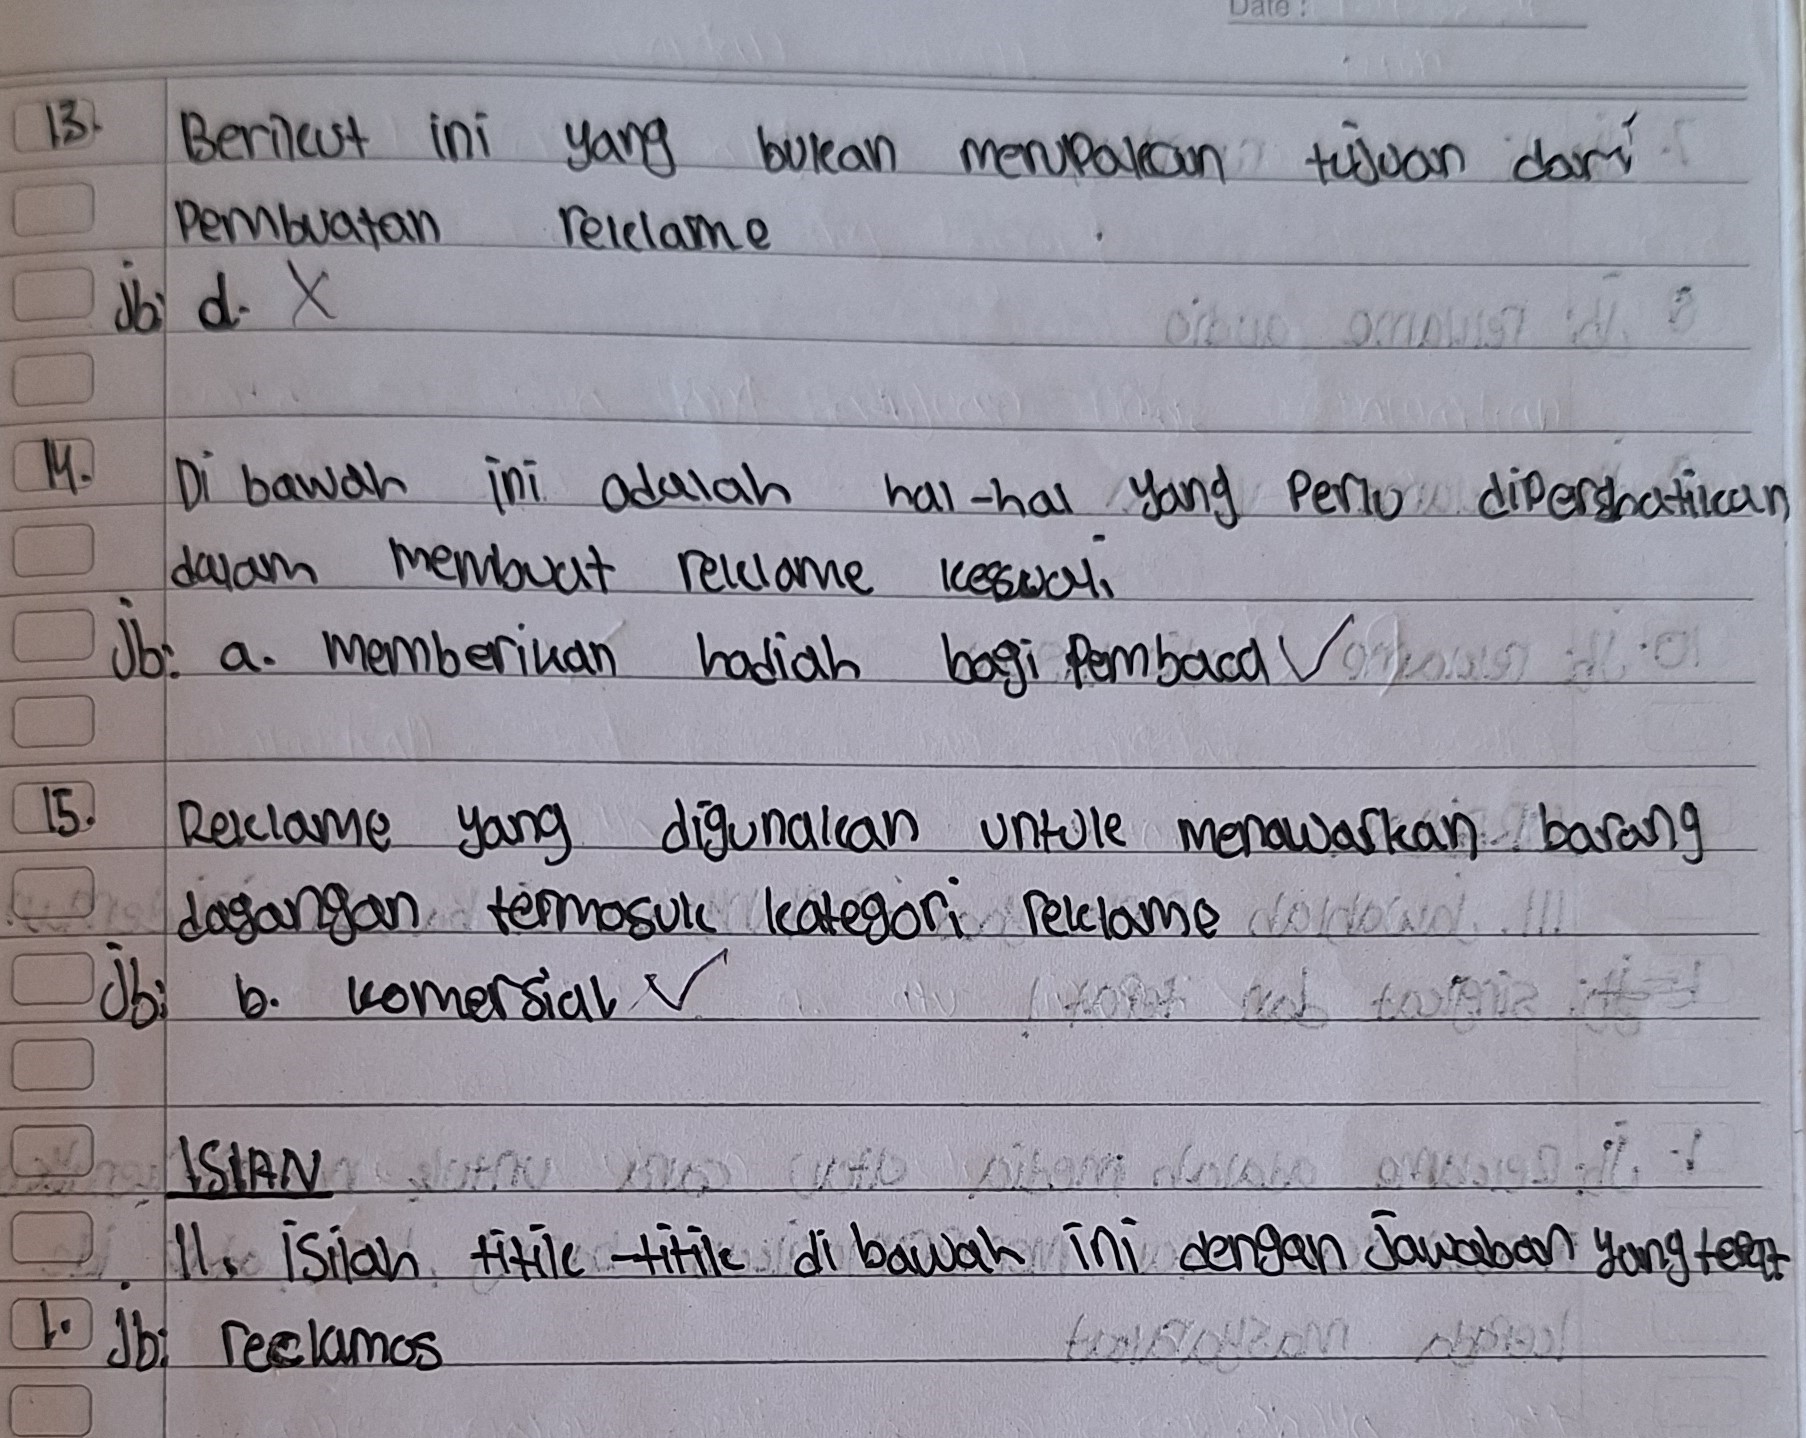 Date :
13. Berikut ini yang bukan merupakan tujuan dari
pembuatan reklame
jb: d. X
14. Di bawah ini adalah hal-hal yang perlu dipershatikan
dalam membuat reklame kecuali
jb: a. memberikan hadiah bagi pembaca ✓
15. Reklame yang digunakan untuk menawarkan barang
dagangan termasuk kategori reklame
jb: b. komersial ✓
ISIAN
II. isilah titik-titik di bawah ini dengan jawaban yang
1. jb: reclamos